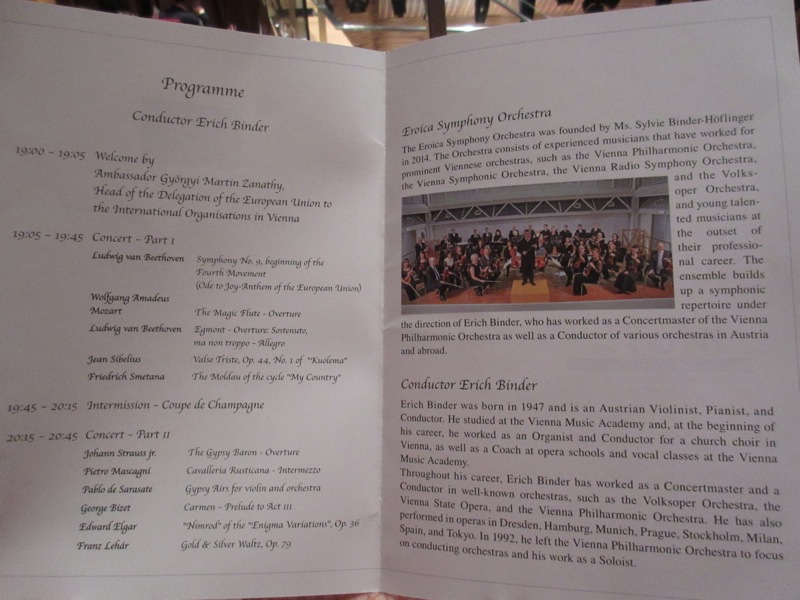 Programme
Conductor Erich Binder
19:00 – 19:05 Welcome by
Ambassador Györgyi Martin Zanathy,
Head of the Delegation of the European Union to
the International Organisations in Vienna
19:05 – 19:45 Concert – Part I
Ludwig van Beethoven Symphony No. 9, beginning of the
Fourth Movement
(Ode to Joy-Anthem of the European Union)
Wolfgang Amadeus
Mozart The Magic Flute - Overture
Ludwig van Beethoven Egmont - Overture: Sostenuto,
ma non troppo – Allegro
Jean Sibelius Valse Triste, Op. 44, No. 1 of "Kuolema"
Friedrich Smetana The Moldau of the cycle "My Country"
19:45 – 20:15 Intermission – Coupe de Champagne
20:15 – 20:45 Concert – Part II
Johann Strauss jr. The Gypsy Baron - Overture
Pietro Mascagni Cavalleria Rusticana - Intermezzo
Pablo de Sarasate Gypsy Airs for violin and orchestra
George Bizet Carmen - Prelude to Act III
Edward Elgar "Nimrod" of the "Enigma Variations", Op. 36
Franz Lehár Gold & Silver Waltz, Op. 79
Eroica Symphony Orchestra
The Eroica Symphony Orchestra was founded by Ms. Sylvie Binder-Höflinger
in 2014. The Orchestra consists of experienced musicians that have worked for
prominent Viennese orchestras, such as the Vienna Philharmonic Orchestra,
the Vienna Symphonic Orchestra, the Vienna Radio Symphony Orchestra,
and the Volks-
oper Orchestra,
and young talen-
ted musicians at
the outset of
their professio-
nal career. The
ensemble builds
up a symphonic
repertoire under
the direction of Erich Binder, who has worked as a Concertmaster of the Vienna
Philharmonic Orchestra as well as a Conductor of various orchestras in Austria
and abroad.
Conductor Erich Binder
Erich Binder was born in 1947 and is an Austrian Violinist, Pianist, and
Conductor. He studied at the Vienna Music Academy and, at the beginning of
his career, he worked as an Organist and Conductor for a church choir in
Vienna, as well as a Coach at opera schools and vocal classes at the Vienna
Music Academy.
Throughout his career, Erich Binder has worked as a Concertmaster and a
Conductor in well-known orchestras, such as the Volksoper Orchestra, the
Vienna State Opera, and the Vienna Philharmonic Orchestra. He has also
performed in operas in Dresden, Hamburg, Munich, Prague, Stockholm, Milan,
Spain, and Tokyo. In 1992, he left the Vienna Philharmonic Orchestra to focus
on conducting orchestras and his work as a Soloist.